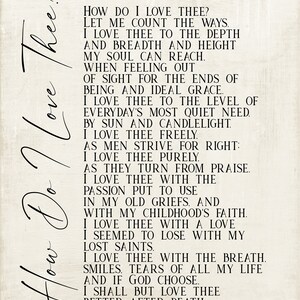 How Do I Love Thee?
HOW DO I LOVE THEE?
LET ME COUNT THE WAYS.
I LOVE THEE TO THE DEPTH
AND BREADTH AND HEIGHT
MY SOUL CAN REACH,
WHEN FEELING OUT
OF SIGHT FOR THE ENDS OF
BEING AND IDEAL GRACE.
I LOVE THEE TO THE LEVEL OF
EVERYDAY'S MOST QUIET NEED,
BY SUN AND CANDLELIGHT.
I LOVE THEE FREELY,
AS MEN STRIVE FOR RIGHT;
I LOVE THEE PURELY,
AS THEY TURN FROM PRAISE.
I LOVE THEE WITH THE
PASSION PUT TO USE
IN MY OLD GRIEFS, AND
WITH MY CHILDHOOD'S FAITH.
I LOVE THEE WITH A LOVE
I SEEMED TO LOSE WITH MY
LOST SAINTS.
I LOVE THEE WITH THE BREATH,
SMILES, TEARS OF ALL MY LIFE
AND IF GOD CHOOSE,
I SHALL BUT LOVE THEE
BETTER AFTER DEATH